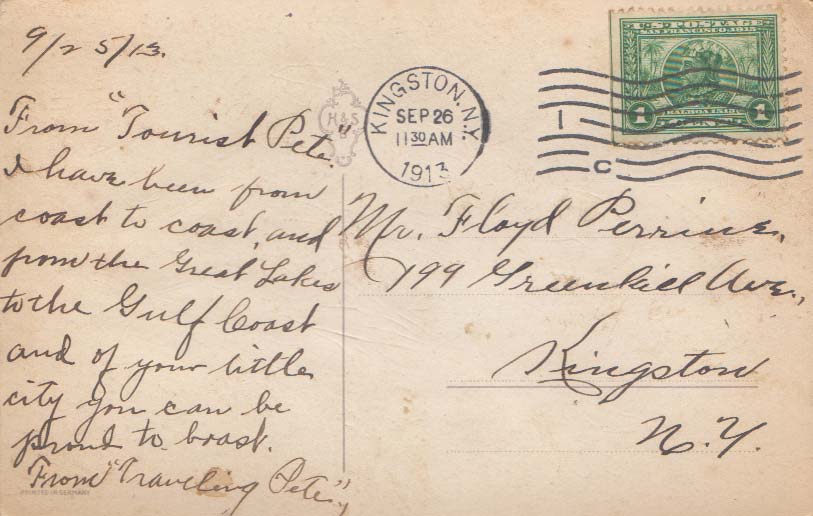 9/25/13.
From "Tourist Pete."
I have been from
coast to coast, and
from the Great Lakes
to the Gulf Coast
and of your little
city you can be
proud to boast.
From "Traveling Pete."
PRINTED IN GERMANY
H & S
B
KINGSTON, N.Y.
SEP 26
11 30 AM
1913
1
C
U.S. POSTAGE
SAN FRANCISCO 1915
1 1
BALBOA 1513
CENT
Mr. Floyd Perrine,
199 Greenkill Ave.,
Kingston
N.Y.